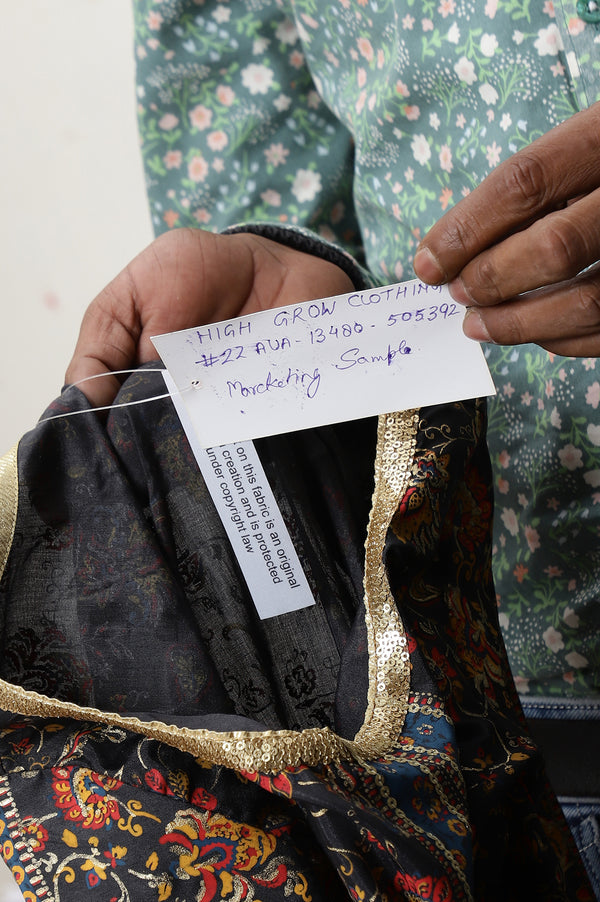 HIGH GROW CLOTHING
#22 AUA-13480-505392
Marcketing Sample
on this fabric is an original
creation and is protected
under copyright law